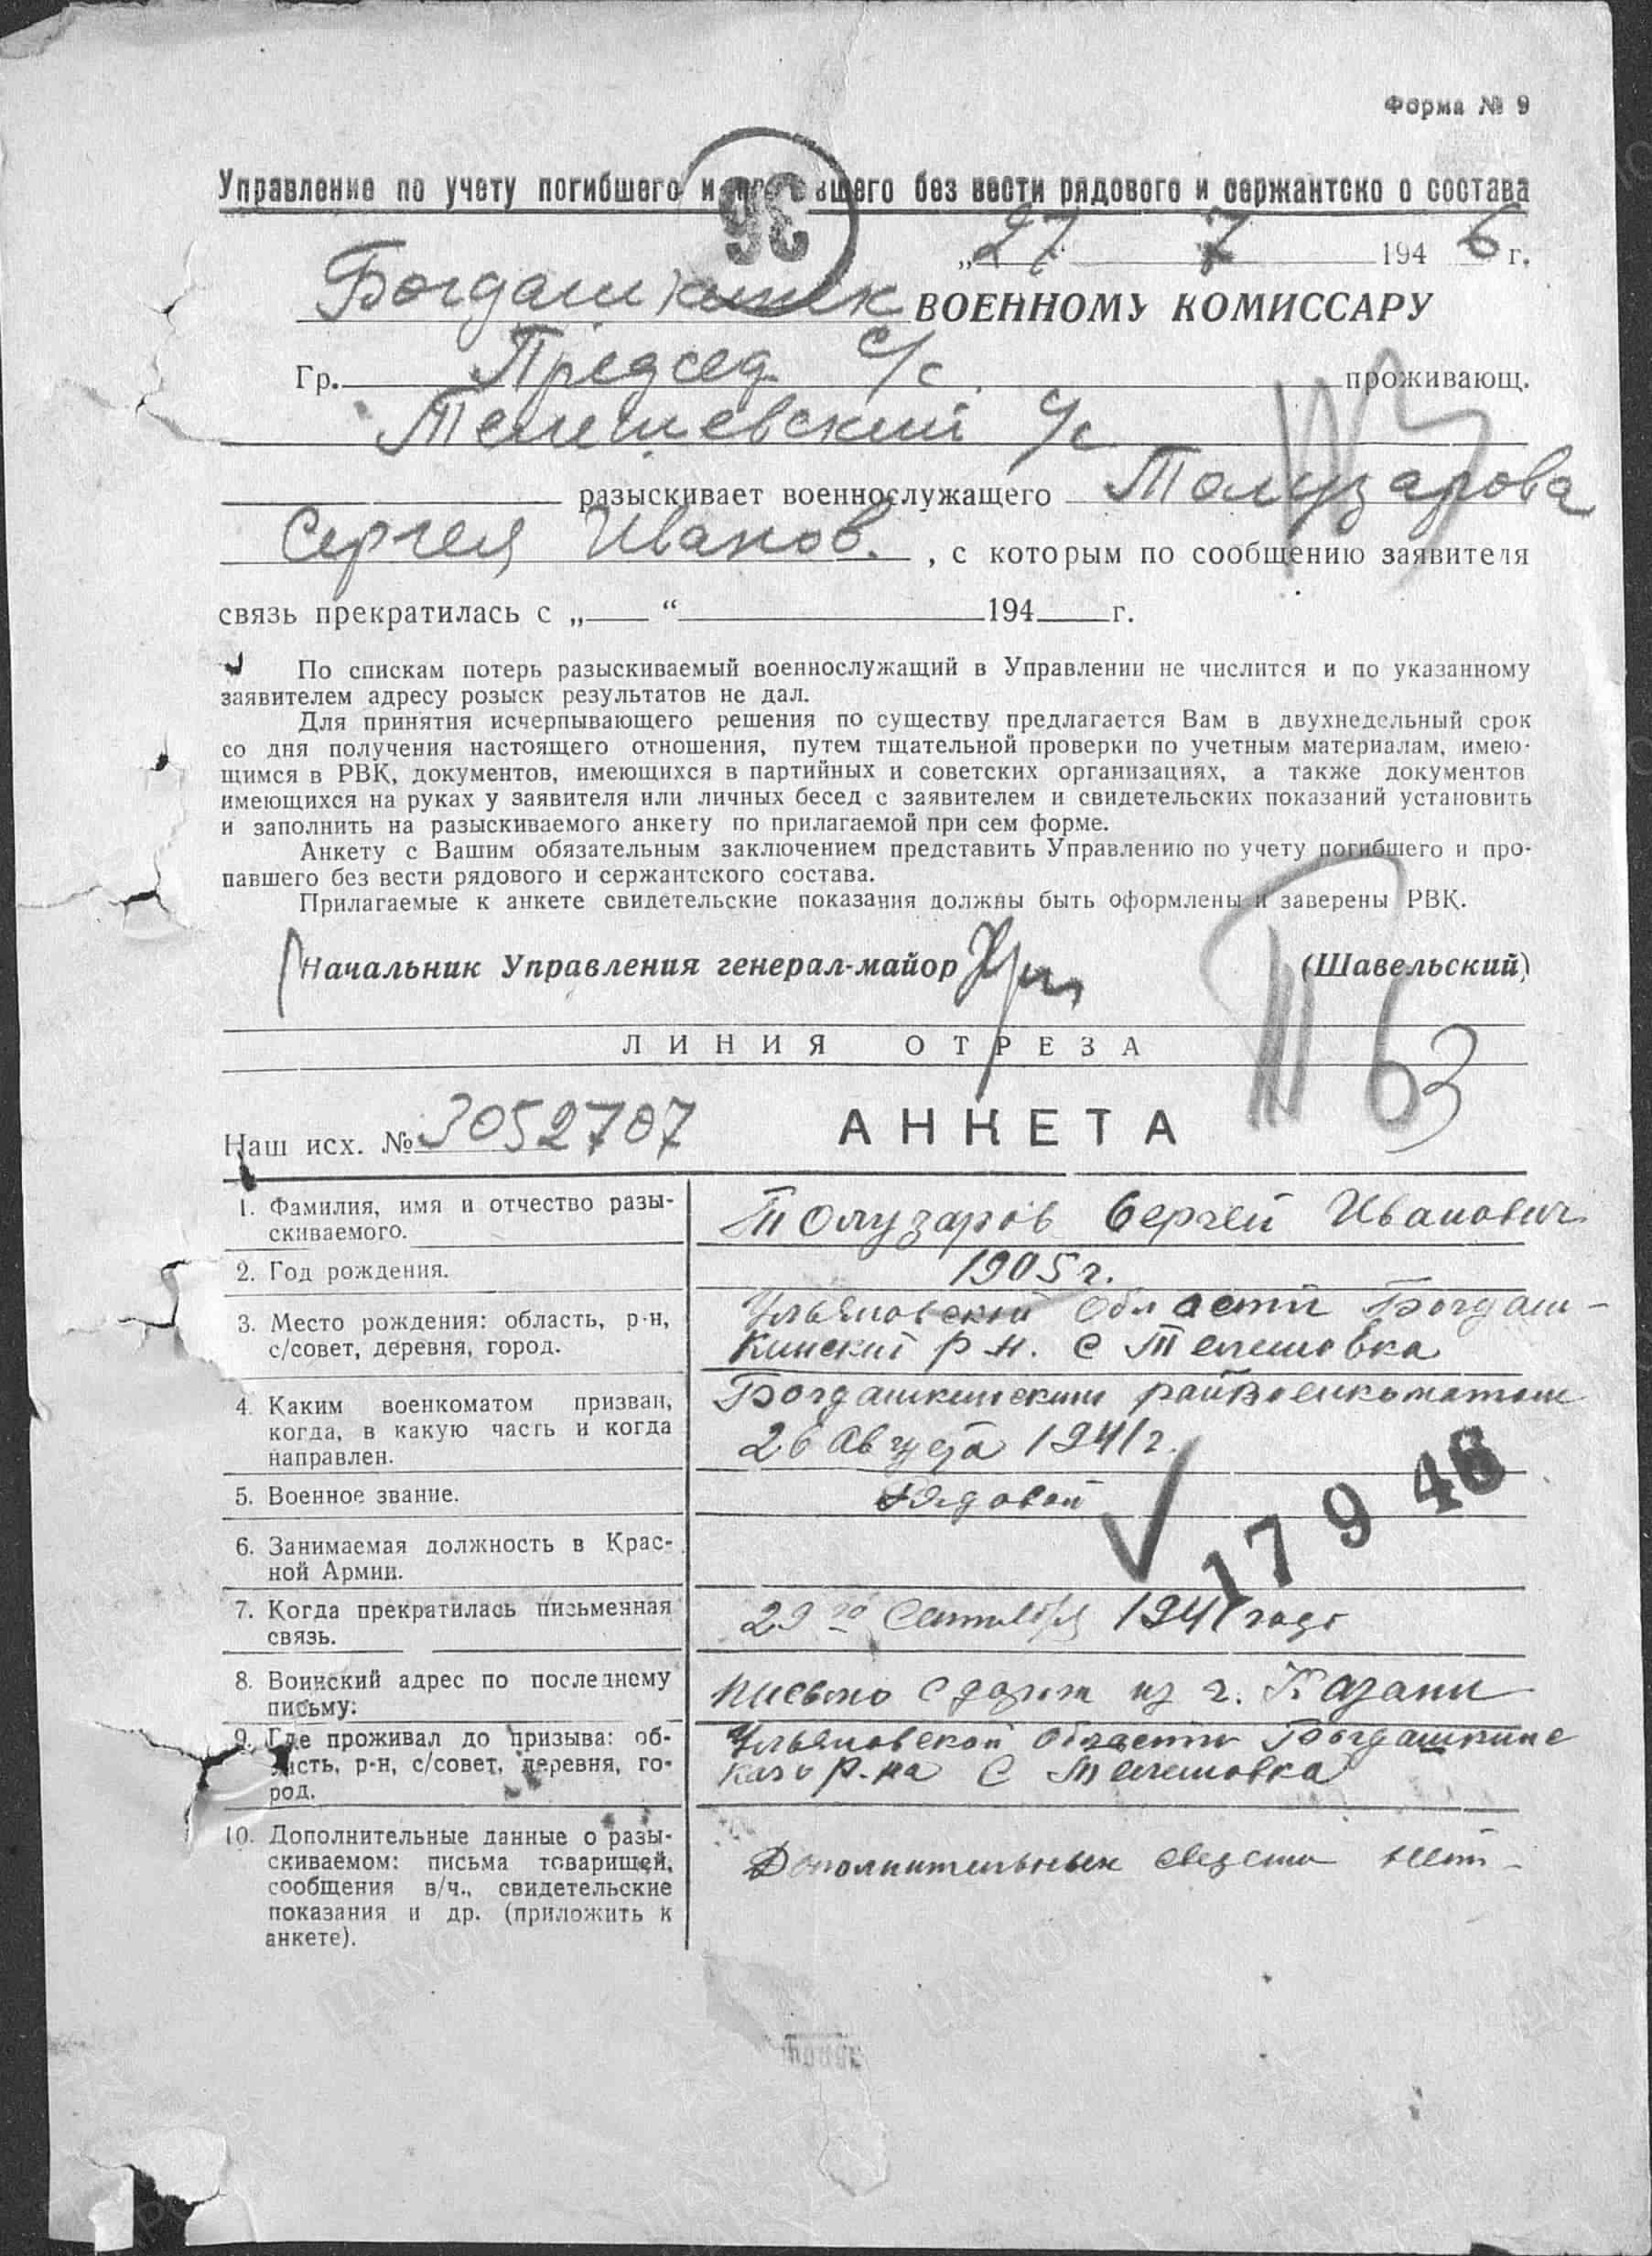 Форма № 9
Управление по учету погибшего и пр вшего без вести рядового и сержантско о состава
36
„27" 7 1946 г.
Богдашкинск ВОЕННОМУ КОМИССАРУ
Гр. Председ. с/с. проживающ.
Телешевский с/с
разыскивает военнослужащего Толузарова
Сергея Иванов. , с которым по сообщению заявителя
связь прекратилась с „ “ 194 г.
По спискам потерь разыскиваемый военнослужащий в Управлении не числится и по указанному
заявителем адресу розыск результатов не дал.
Для принятия исчерпывающего решения по существу предлагается Вам в двухнедельный срок
со дня получения настоящего отношения, путем тщательной проверки по учетным материалам, имею-
щимся в РВК, документов, имеющихся в партийных и советских организациях, а также документов
имеющихся на руках у заявителя или личных бесед с заявителем и свидетельских показаний установить
и заполнить на разыскиваемого анкету по прилагаемой при сем форме.
Анкету с Вашим обязательным заключением представить Управлению по учету погибшего и про-
павшего без вести рядового и сержантского состава.
Прилагаемые к анкете свидетельские показания должны быть оформлены и заверены РВК.
Начальник Управления генерал-майор (Шавельский)
ЛИНИЯ ОТРЕЗА
63
Наш исх. № 3052707 АНКЕТА
1. Фамилия, имя и отчество разы-
скиваемого.
Толузаров Сергей Иванович
2. Год рождения.
1905 г.
3. Место рождения: область, р-н,
с/совет, деревня, город.
Ульяновской области Богдаш-
кинский р-н. с Телешовка
4. Каким военкоматом призван,
когда, в какую часть и когда
направлен.
Богдашкинским райвоенкоматом
26 Августа 1941 г.
5. Военное звание.
Рядовой
17 9 46
6. Занимаемая должность в Крас-
ной Армии.
7. Когда прекратилась письменная
связь.
29го Сентября 1941 года
8. Воинский адрес по последнему
письму:
письмо с дороги из г. Казани
9. Где проживал до призыва: об-
ласть, р-н, с/совет, деревня, го-
род.
Ульяновской области Богдашкинс
каго р-на с Телешовка
10. Дополнительные данные о разы-
скиваемом: письма товарищей,
сообщения в/ч., свидетельские
показания и др. (приложить к
анкете).
Дополнительных сведени нет -